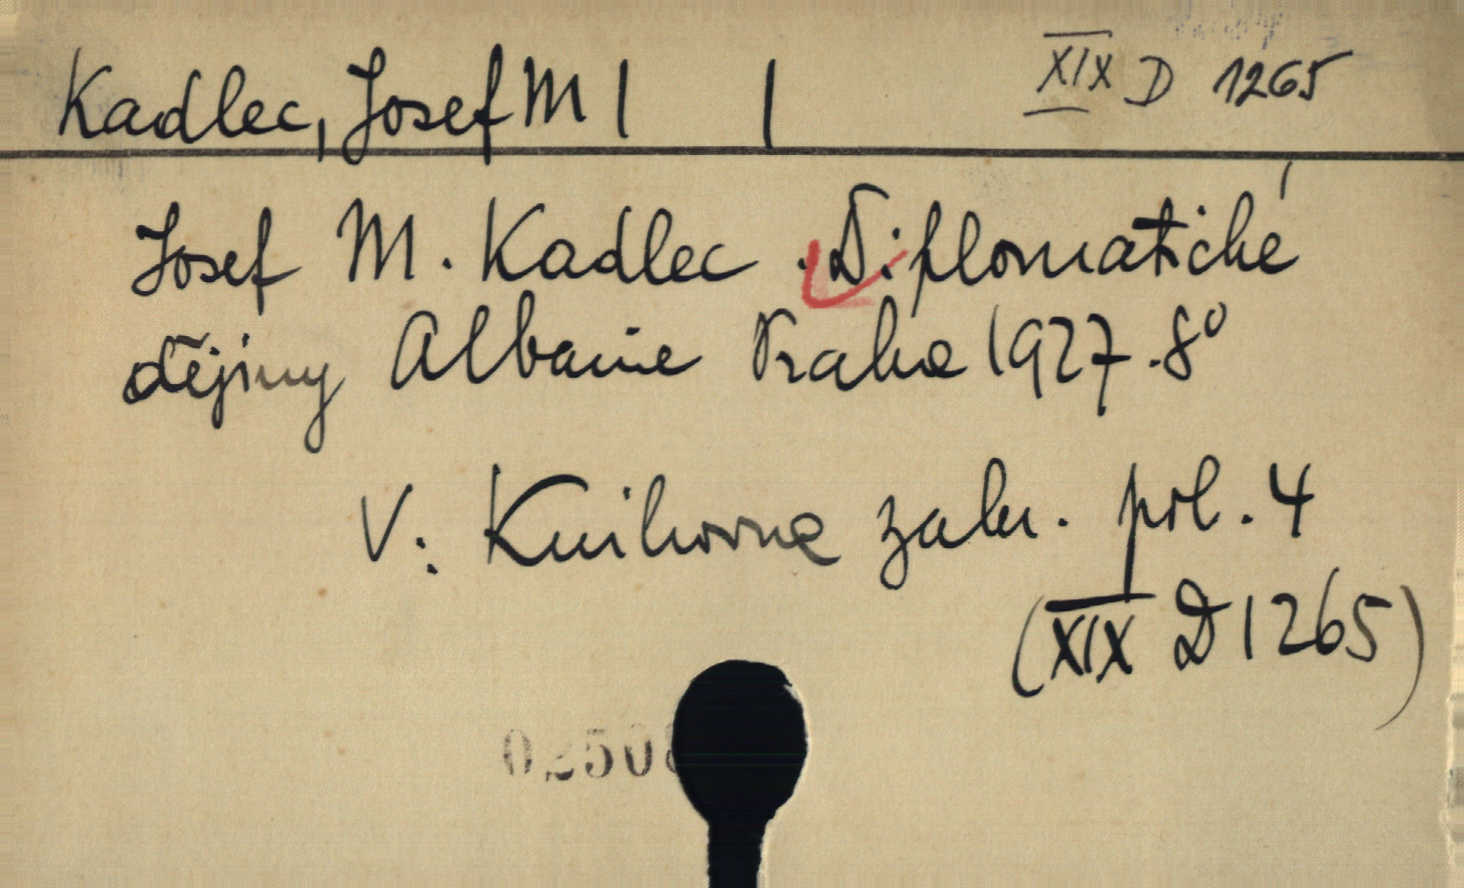 Kadlec, Josef M | | XIX D 1265
Josef M. Kadlec. Diplomatické
dějiny Albanie Praha 1927. 8°
V: Knihovna zahr. pol. 4
(XIX D 1265)
02508